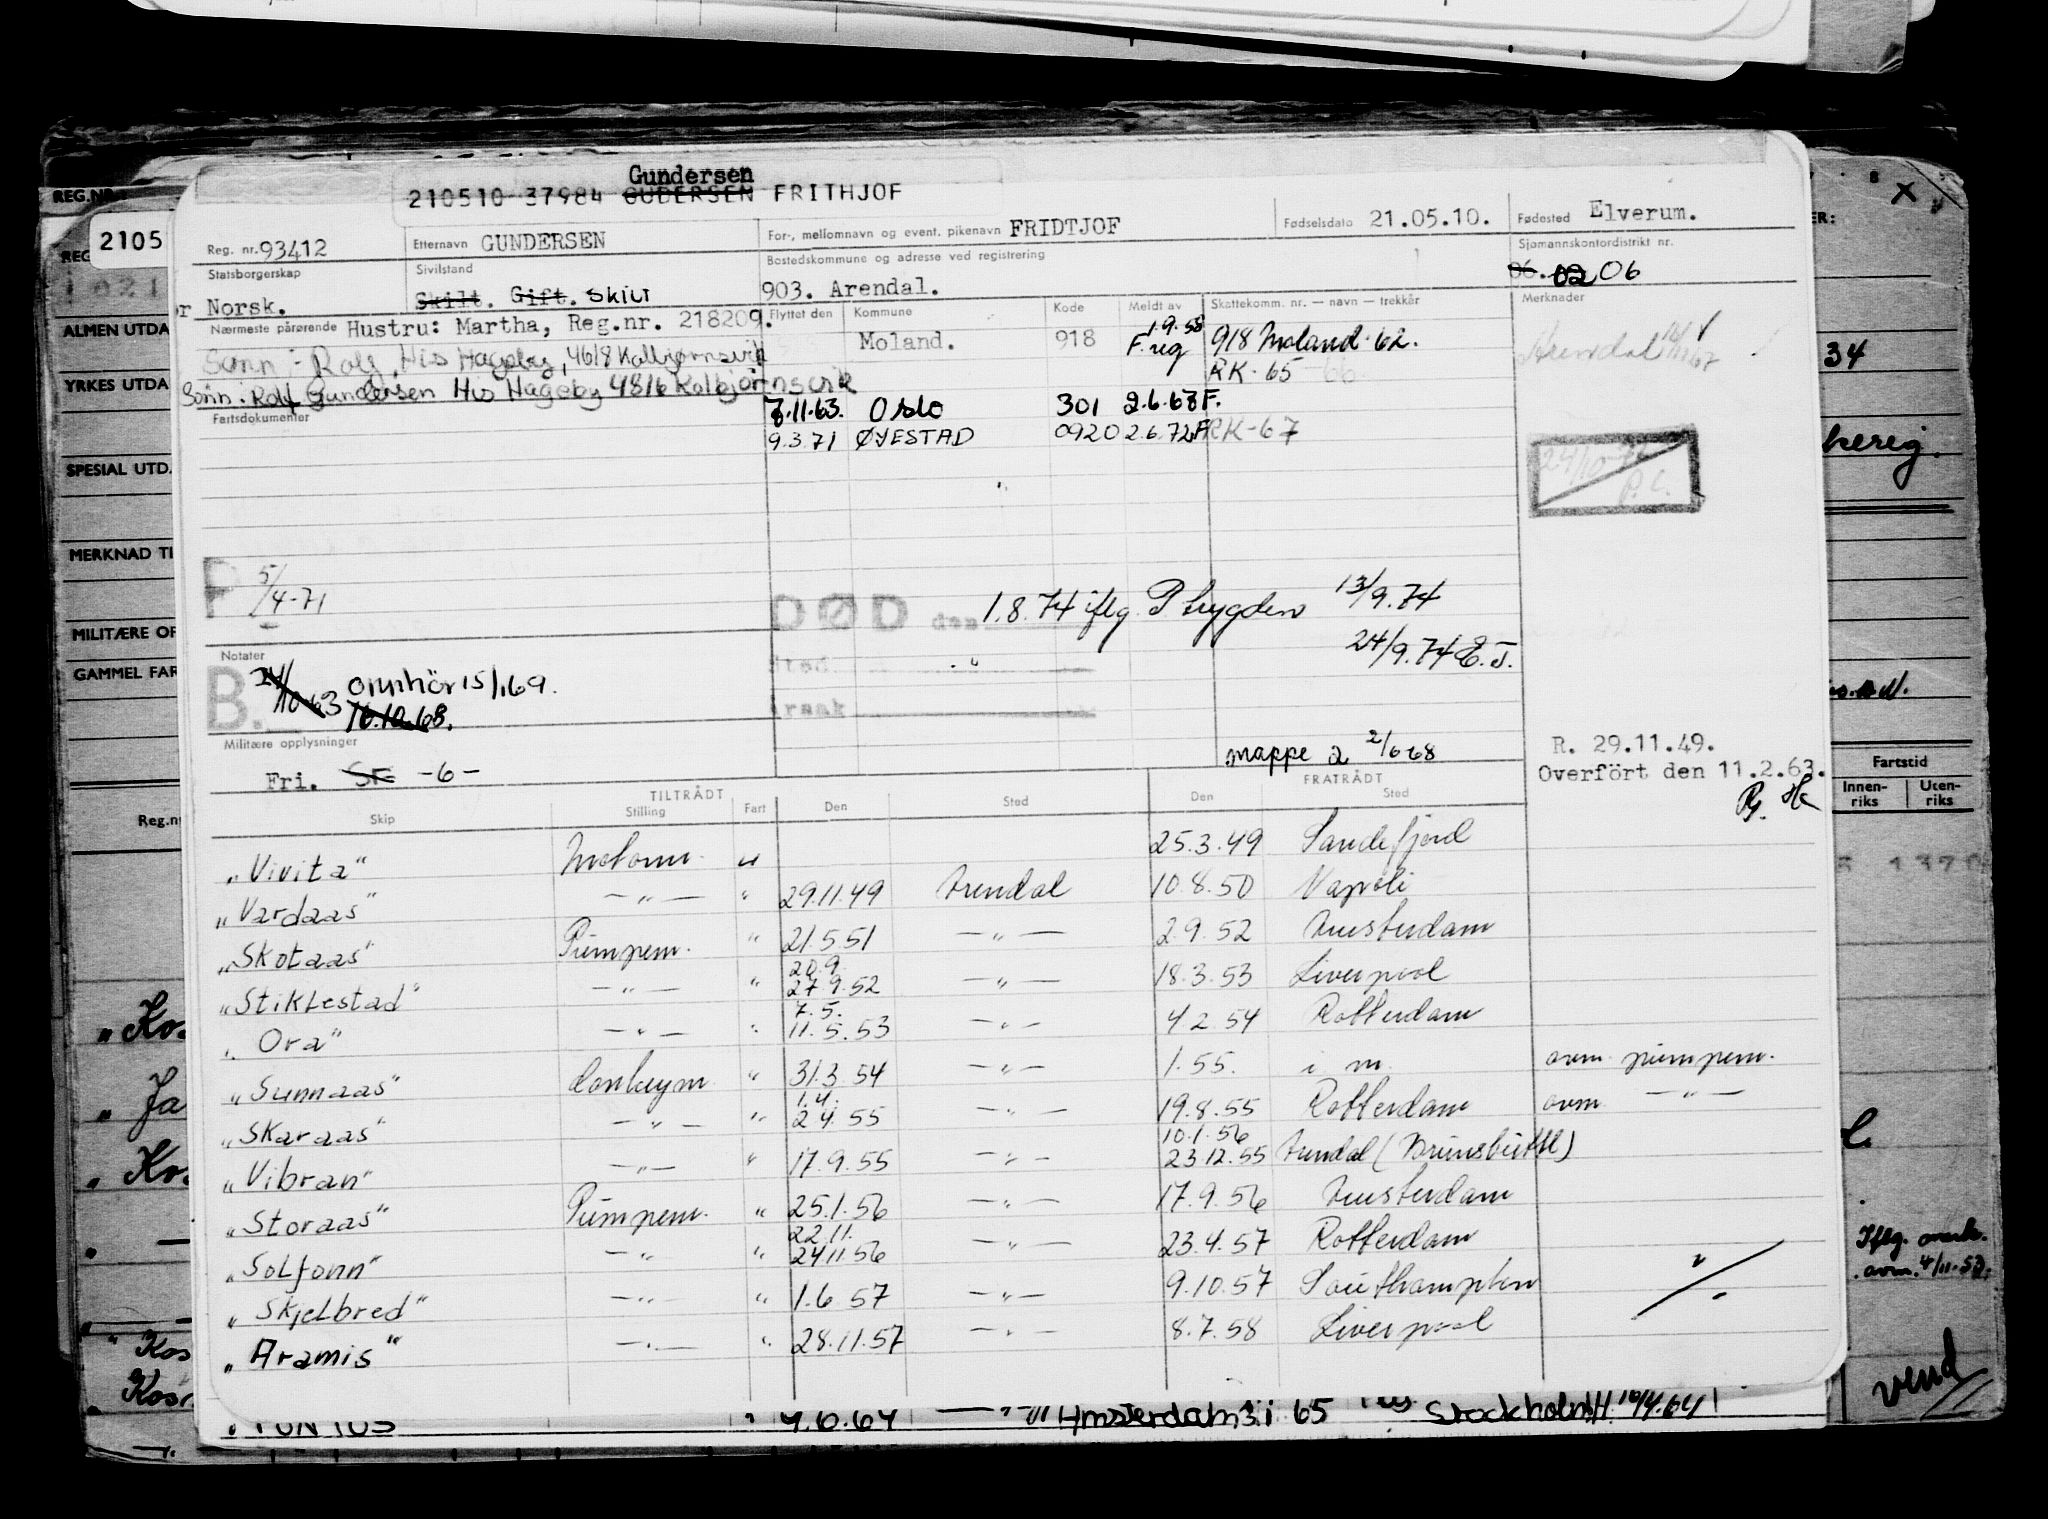 Gundersen
210510 37984 GUDERSEN FRITHJOF
Reg. nr. 93412 Etternavn GUNDERSEN For-, mellomnavn og event. pikenavn FRIDTJOF Fødselsdato 21.05.10. Fødested Elverum.
Statsborgerskap Sivilstand Bostedskommune og adresse ved registrering Sjømannskontordistrikt nr.
Norsk. Skilt. Gift. Skilt 903. Arendal. 06. 02 06
Nærmeste pårørende Hustru: Martha, Reg.nr. 218209. Flyttet den Kommune Kode Meldt av Skattekomm. nr. — navn — trekkår Merknader
Moland. 918 1.9.58 F.reg 918 Moland 62.
Sønn: Rolf, His Hageby, 4618 Kolbjørnsvik RK-65 66 Arendal
Sønn: Rolf Gundersen His Hageby 4816 Kolbjørnsvik
Fartsdokumenter 7.11.63. Oslo 301 2.6.68 F.
9.3.71 ØYESTAD 0920 2.6.72 F RK-67
24/10 P.C.
P 5/4-71
DØD den 1.8.74 iflg. P trygden 13/9.74
Sted 24/9.74 E.J.
Årsak
Notater
B. omhör 15/1.69.
16.10.68.
Militære opplysninger
Fri. -6-
mappe 2 2/6 68
R. 29.11.49.
Overfört den 11.2.63.
TILTRÅDT FRATRÅDT
Skip Stilling Fart Den Sted Den Sted
"Vivita" Motorm. u 25.3.49 Sandefjord
"Vardaas" — " — " 29.11.49 Arendal 10.8.50 Napoli
"Skotaas" Pumpem. " 21.5.51 — " — 2.9.52 Amsterdam
20.9.
"Stiklestad" — " — " 27 9.52 — " — 18.3.53 Liverpool
7.5.
"Ora" — " — " 11.5.53 — " — 4 2 54 Rotterdam
"Sunnaas" Donkeym " 31.3 54 — " — 1.55. i m. avm pumpem.
1.4.
"Skaraas" — " — " 2 4. 55 — " — 19.8.55 Rotterdam avm — " —
10.1.56
"Vibran" — " — " 17.9.55 — " — 23.12.55 Arendal (Brunsbüttel)
"Storaas" Pumpem. " 25.1.56 — " — 17.9.56 Amsterdam
22.11.
"Solfonn" — " " 24.11.56 — " — 23.4.57 Rotterdam
"Skjelbred" — " — " 1.6 57 — " — 9.10.57 Southampton
"Aramis" — " — " 28.11.57 — " — 8.7.58 Liverpool
4.6.64 — " — Amsterdam 3.1 65 Stockholm 16/4.64
REG.NR.
2105
ALMEN UTDA
YRKES UTDA
SPESIAL UTD.
MERKNAD TI
MILITÆRE OP
GAMMEL FAR
Reg.nr
"Ko
"Ja
"Ko
"Kos
Kos
8 X
ER:
34
Fartstid
Innen-riks Uten-riks
Iflg. merk.
avm. 4/11.53.
vend